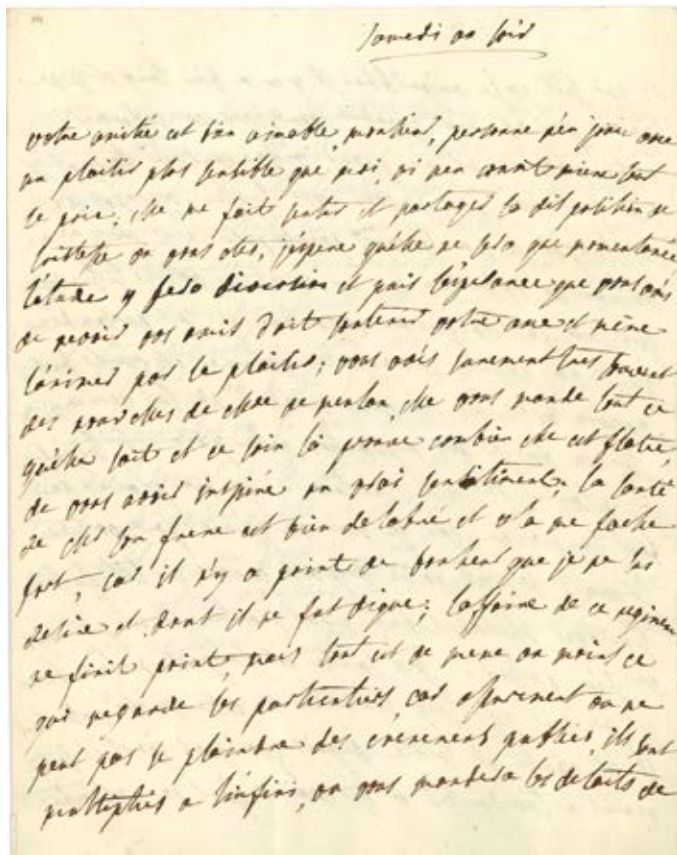 samedi au soir
votre amitié est bien aimable, monsieur, personne n'en jouie avec
un plaisir plus sensible que moi, ni n'en connoit mieux tout
le prix; elle me fait sentir et partager la disposition de
tristesse ou vous etes, j'espere qu'elle ne sera que momentanée
l'étude y fera diversion et puis l'esperance que vous avés
de revoir vos amis doit soutenir votre ame et même
l'animer par le plaisir; vous avés surement tres souvent
des nouvelles de elle vous mande tout ce
qu'elle sait et ce soin là prouve combien elle est flatée
de vous avoir inspiré un vrai sentiment; la santé
de son frere est bien delabrée et cela me fache
fort, car il n'y a point de bonheur que je ne lui
desire et dont il ne fut digne; l'affaire de ce regiment
ne finit point, mais tout est de meme au moins ce
qui regarde les particuliers, car assurement on ne
peut pas se plaindre des evenements publics, ils sont
multipliés a l'infini, on vous mandera les details de